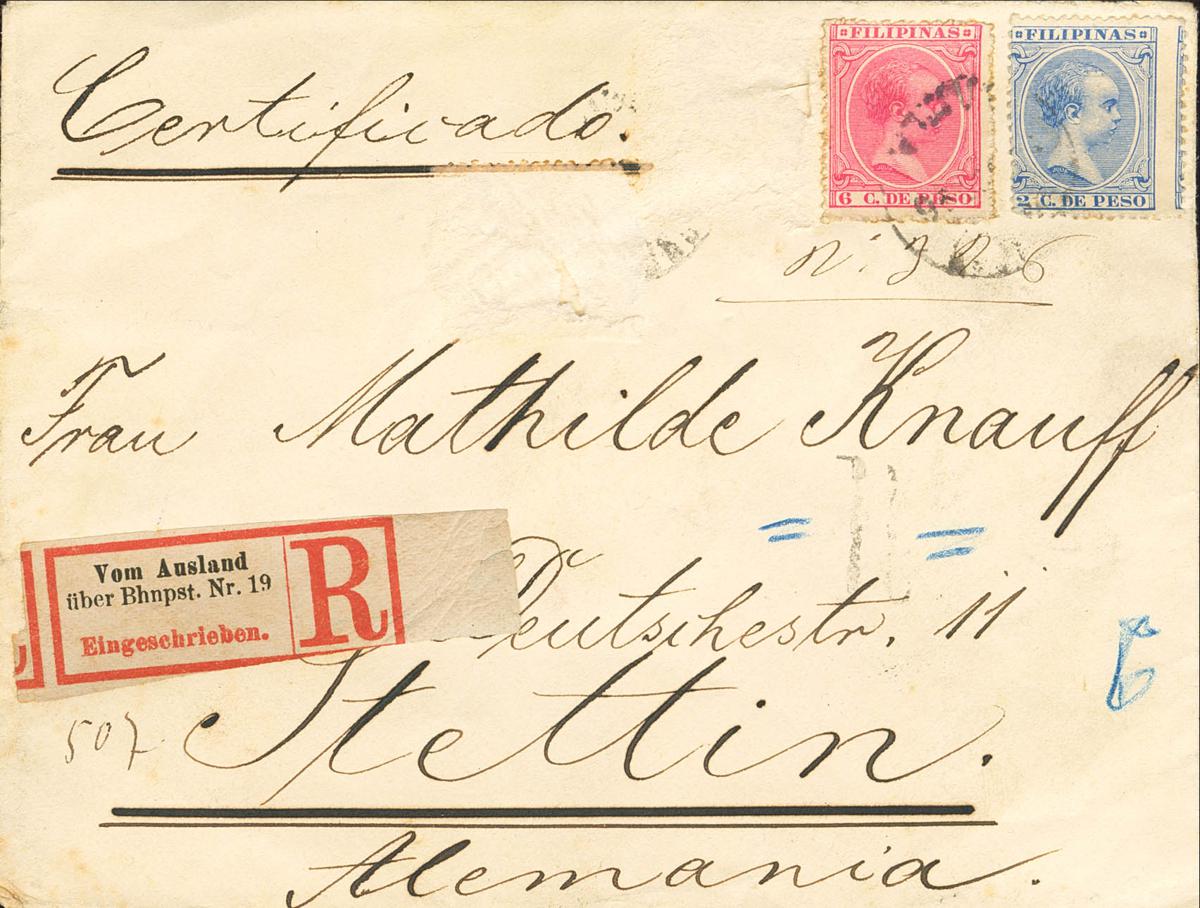 FILIPINAS
6 C. DE PESO
FILIPINAS
2 C. DE PESO
Certificado.
Frau Mathilde Knauff
Vom Ausland
über Bhnpst. Nr. 19
Eingeschrieben.
R
Deutschestr. 11
507
Stettin.
Alemania.